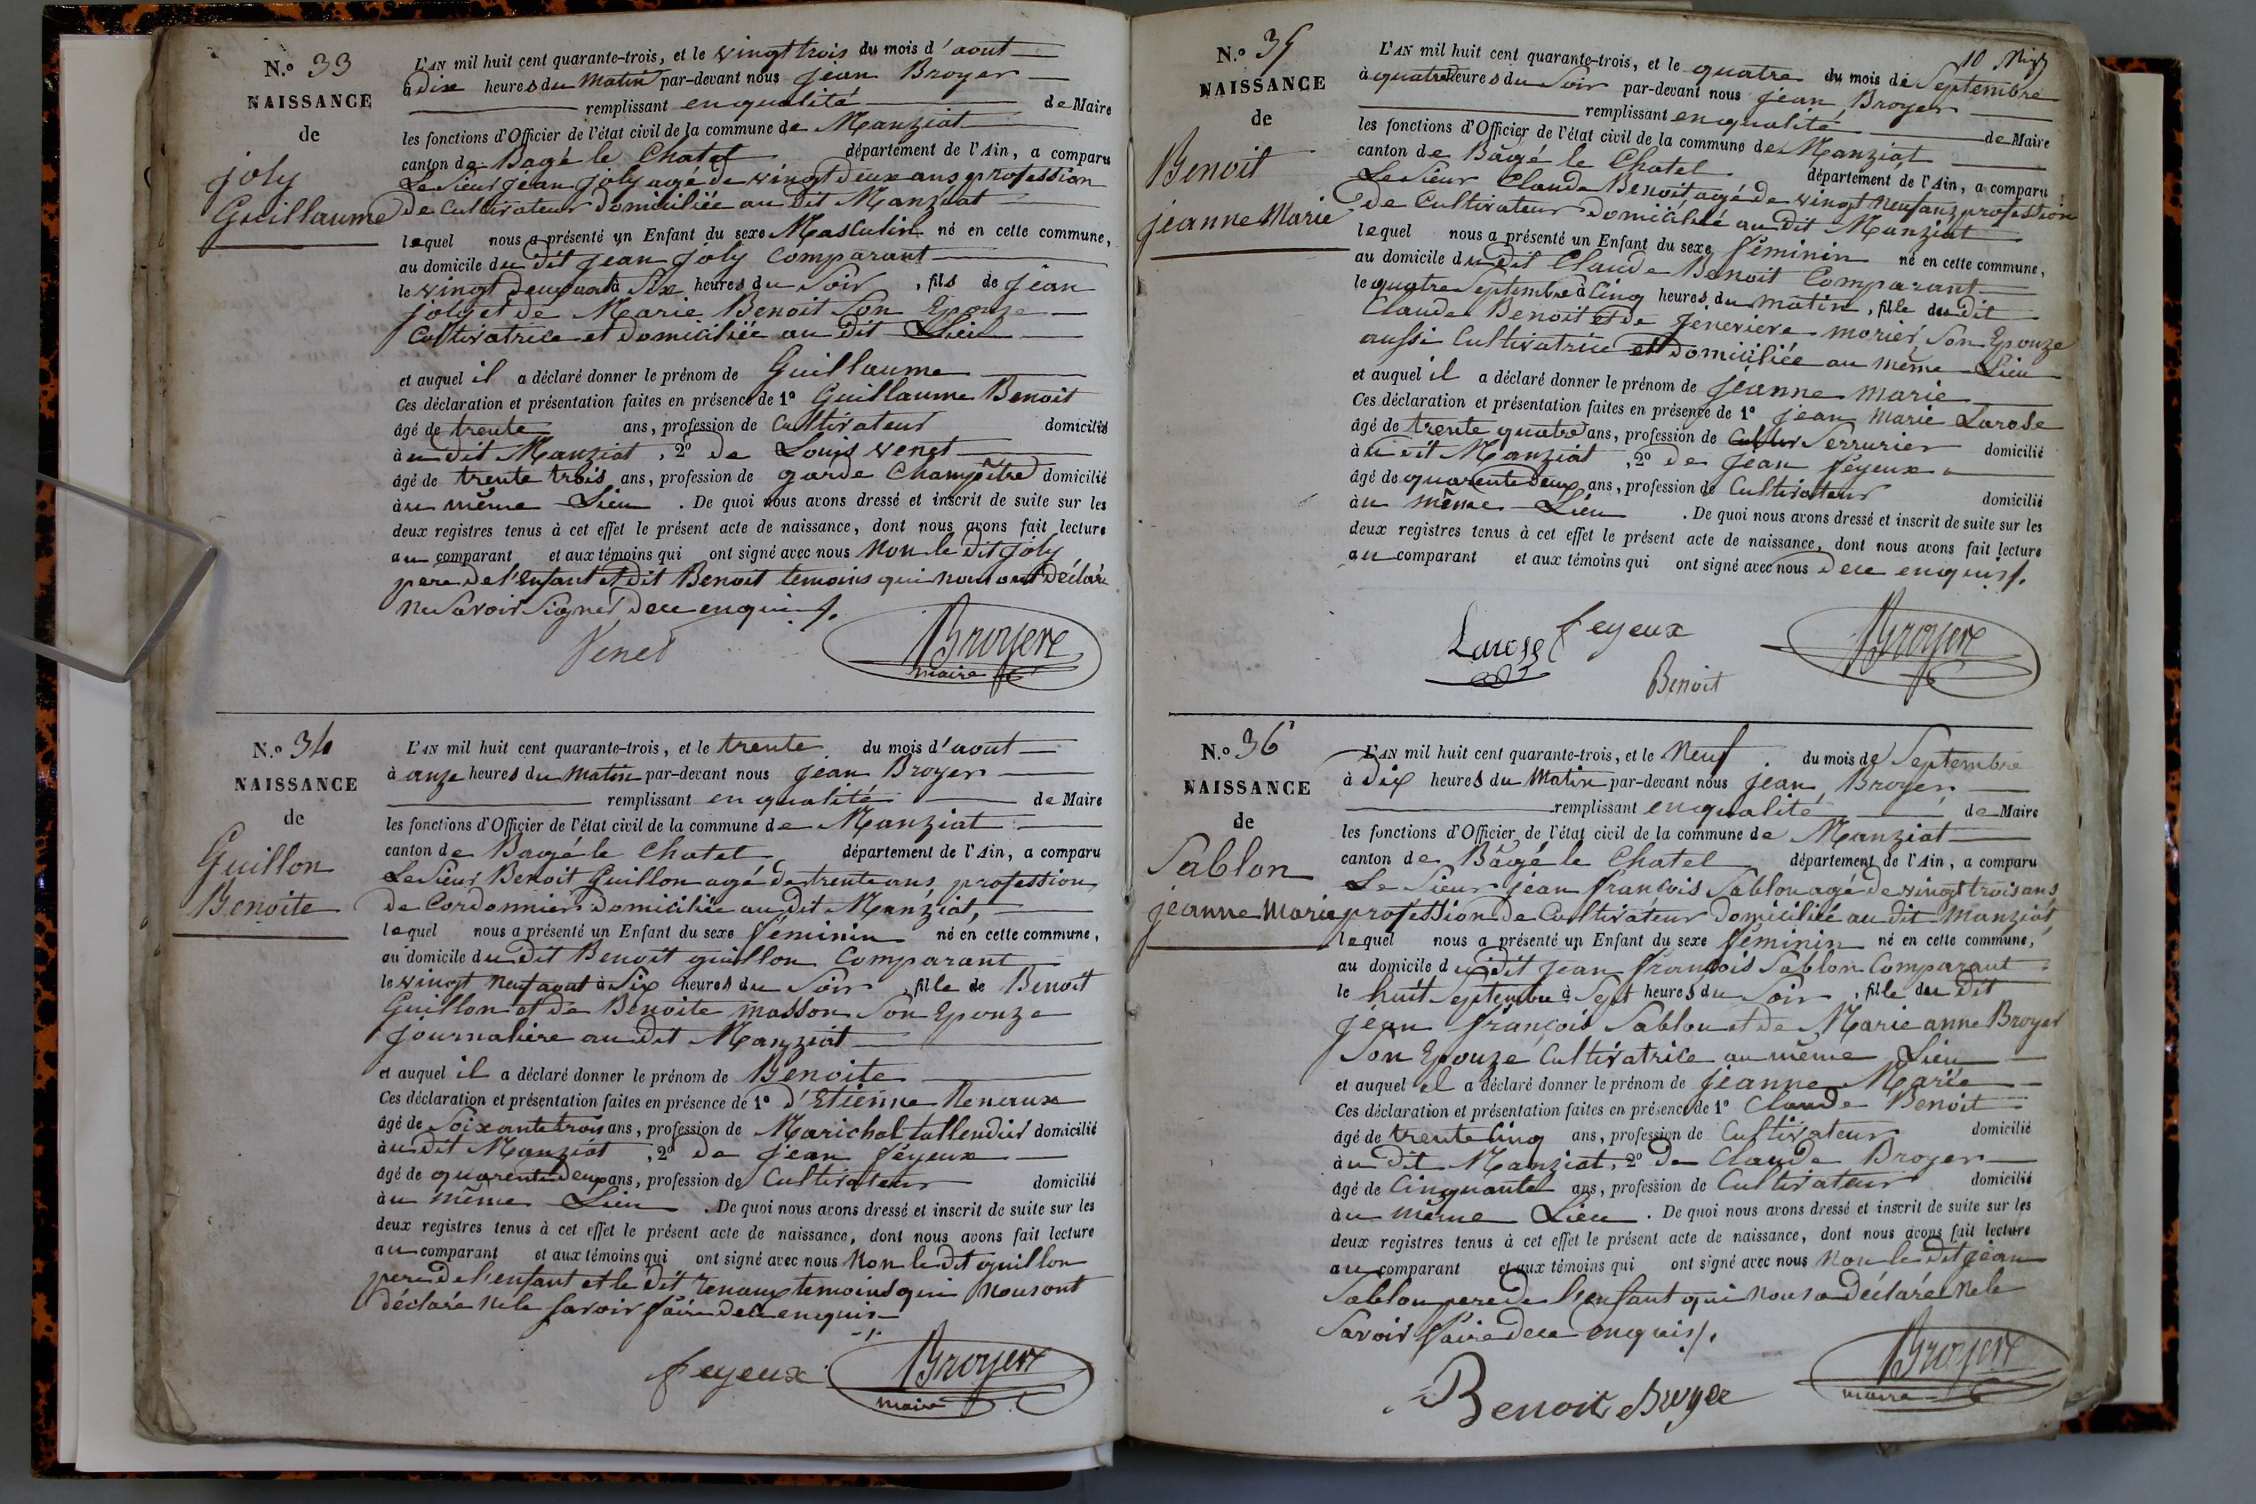 N.o 33
NAISSANCE
de
joly
Guillaume
L'AN mil huit cent quarante-trois, et le vingt trois du mois d'aout
à dix heures du matin par-devant nous jean Broyer
remplissant en qualité de Maire
les fonctions d'Officier de l'état civil de la commune de Manziat
canton de Bagé le Chatel département de l'Ain, a comparu
Le Sieur jean joly agé de vingt deux ans profession
de Cultivateur domiciliée au dit Manziat
lequel nous a présenté un Enfant du sexe Masculin né en cette commune,
au domicile du dit jean joly comparant
le vingt deux aout à Six heures du Soir, fils de jean
joly et de Marie Benoit Son Epouze
Cultivatrice et domiciliée au dit Lieu
et auquel il a déclaré donner le prénom de Guillaume
Ces déclaration et présentation faites en présence de 1o Guillaume Benoit
âgé de trente ans, profession de Cultivateur domicilié
à u dit Manziat, 2o de Louis Venet
âgé de trente trois ans, profession de garde Champêtre domicilié
àu même Lieu. De quoi nous avons dressé et inscrit de suite sur les
deux registres tenus à cet effet le présent acte de naissance, dont nous avons fait lecture
au comparant et aux témoins qui ont signé avec nous Non le dit joly
pere de l'enfant et dit Benoit temoins qui nous ont déclaré
ne Savoir Signer de ce enquis ./.
Venet
Broyer
maire
N.o 34
NAISSANCE
de
Guillon
Benoite
L'AN mil huit cent quarante-trois, et le trente du mois d'aout
à onze heures du Matin par-devant nous jean Broyer
remplissant en qualité de Maire
les fonctions d'Officier de l'état civil de la commune de Manziat
canton de Bagé le Chatel département de l'Ain, a comparu
Le Sieur Benoit Guillon agé de trente ans profession
de Cordonnier domiciliée au dit Manziat,
lequel nous a présenté un Enfant du sexe féminin né en cette commune,
au domicile du dit Benoit guillon Comparant
le vingt neuf aout à Six heures du Soir, fille de Benoit
Guillon et de Benoite masson Son Epouze
journaliere au dit Manziat
et auquel il a déclaré donner le prénom de Benoite
Ces déclaration et présentation faites en présence de 1o d'Etienne Renaux
âgé de Soixante trois ans, profession de Marichal tallendier domicilié
àu dit Manziat, 2o de jean feyeux
âgé de quarente deux ans, profession de Cultivateur domicilié
àu même Lieu. De quoi nous avons dressé et inscrit de suite sur les
deux registres tenus à cet effet le présent acte de naissance, dont nous avons fait lecture
au comparant et aux témoins qui ont signé avec nous Non le dit guillon
pere de l'enfant et le dit renaux temoins qui nous ont
déclaré ne le savoir faire de ce enquis
feyeux
Broyer
maire
10 
N.o 35
NAISSANCE
de
Benoit
jeanne Marie
L'AN mil huit cent quarante-trois, et le quatre du mois de Septembre
à quatre heures du Soir par-devant nous jean Broyer
remplissant en qualité de Maire
les fonctions d'Officier de l'état civil de la commune de Manziat
canton de Bâgé le Chatel département de l'Ain, a comparu
Le Sieur Claude Benoit agé de vingt neuf ans profession
de Cultivateur domiciliée au dit Manziat
lequel nous a présenté un Enfant du sexe féminin né en cette commune,
au domicile du dit Claude Benoit Comparant
le quatre Septembre à Cinq heures du matin, fille du dit
Claude Benoit et de jenevieve morier Son Epouze
aussi Cultivatrice et domiciliée au même Lieu
et auquel il a déclaré donner le prénom de jeanne marie
Ces déclaration et présentation faites en présence de 1o jean marie Larose
âgé de trente quatre ans, profession de Serrurier domicilié
àu dit Manziat, 2o de jean feyeux
âgé de quarente deux ans, profession de Cultivateur domicilié
àu même Lieu. De quoi nous avons dressé et inscrit de suite sur les
deux registres tenus à cet effet le présent acte de naissance, dont nous avons fait lecture
au comparant et aux témoins qui ont signé avec nous de ce enquis ./.
Larose feyeux
Benoit
Broyer
N.o 36
NAISSANCE
de
Sablon
jeanne Marie
L'AN mil huit cent quarante-trois, et le Neuf du mois de Septembre
à dix heures du Matin par-devant nous jean Broyer
remplissant en qualité de Maire
les fonctions d'Officier de l'état civil de la commune de Manziat
canton de Bâgé le Chatel département de l'Ain, a comparu
Le Sieur jean françois Sablon agé de vingt trois ans
profession de Cultivateur domiciliée au dit Manziat
lequel nous a présenté un Enfant du sexe féminin né en cette commune,
au domicile du dit jean françois Sablon Comparant
le huit Septembre à Sept heures du Soir, fille du dit
jean françois Sablon et de Marie anne Broyer
Son Epouze Cultivatrice au même Lieu
et auquel il a déclaré donner le prénom de jeanne Marie
Ces déclaration et présentation faites en présence de 1o Claude Benoit
âgé de trente Cinq ans, profession de Cultivateur domicilié
àu dit Manziat, 2o de Claude Broyer
âgé de Cinquante ans, profession de Cultivateur domicilié
àu même Lieu. De quoi nous avons dressé et inscrit de suite sur les
deux registres tenus à cet effet le présent acte de naissance, dont nous avons fait lecture
au comparant et aux témoins qui ont signé avec nous Non le dit jean
Sablon pere de l'enfant qui nous a déclaré ne le
Savoir faire de ce enquis ./.
Benoit Broyer
Broyer
maire